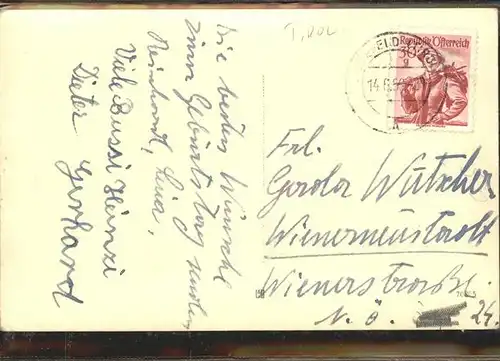 Die besten Wünsche
zum Geburtstag senden
Reinhard, Lina,
Viele Bussi Heinzi
Dieter Gerhard
Republik Österreich
14.6.
Frl.
Gerda Wutscher
Wienerneustadt
Wienerstraße
N. Ö. 24.